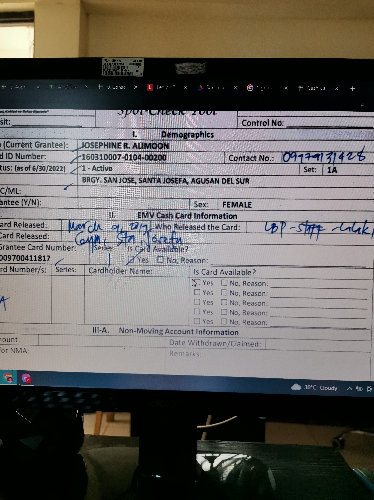 Spot-Check Tool
Control No:
I. Demographics
(Current Grantee): JOSEPHINE R. ALIMOON
ID Number: 160310007-0104-00200 Contact No.: 09979131428
tus: (as of 6/30/2022) 1 - Active Set: 1A
BRGY. SAN JOSE, SANTA JOSEFA, AGUSAN DEL SUR
C/ML:
antee (Y/N): Sex: FEMALE
II. EMV Cash Card Information
ard Released: March Who Released the Card: LBP - staff -
Card Released: Sta. Josefa
Grantee Card Number: Series: Is Card Available?
009700411817 Yes No, Reason:
rd Number/s: Series: Cardholder Name: Is Card Available?
Yes No, Reason:
Yes No, Reason:
Yes No, Reason:
Yes No, Reason:
Yes No, Reason:
III-A. Non-Moving Account Information
ount Date Withdrawn/Claimed:
for NMA: Remarks
30°C Cloudy